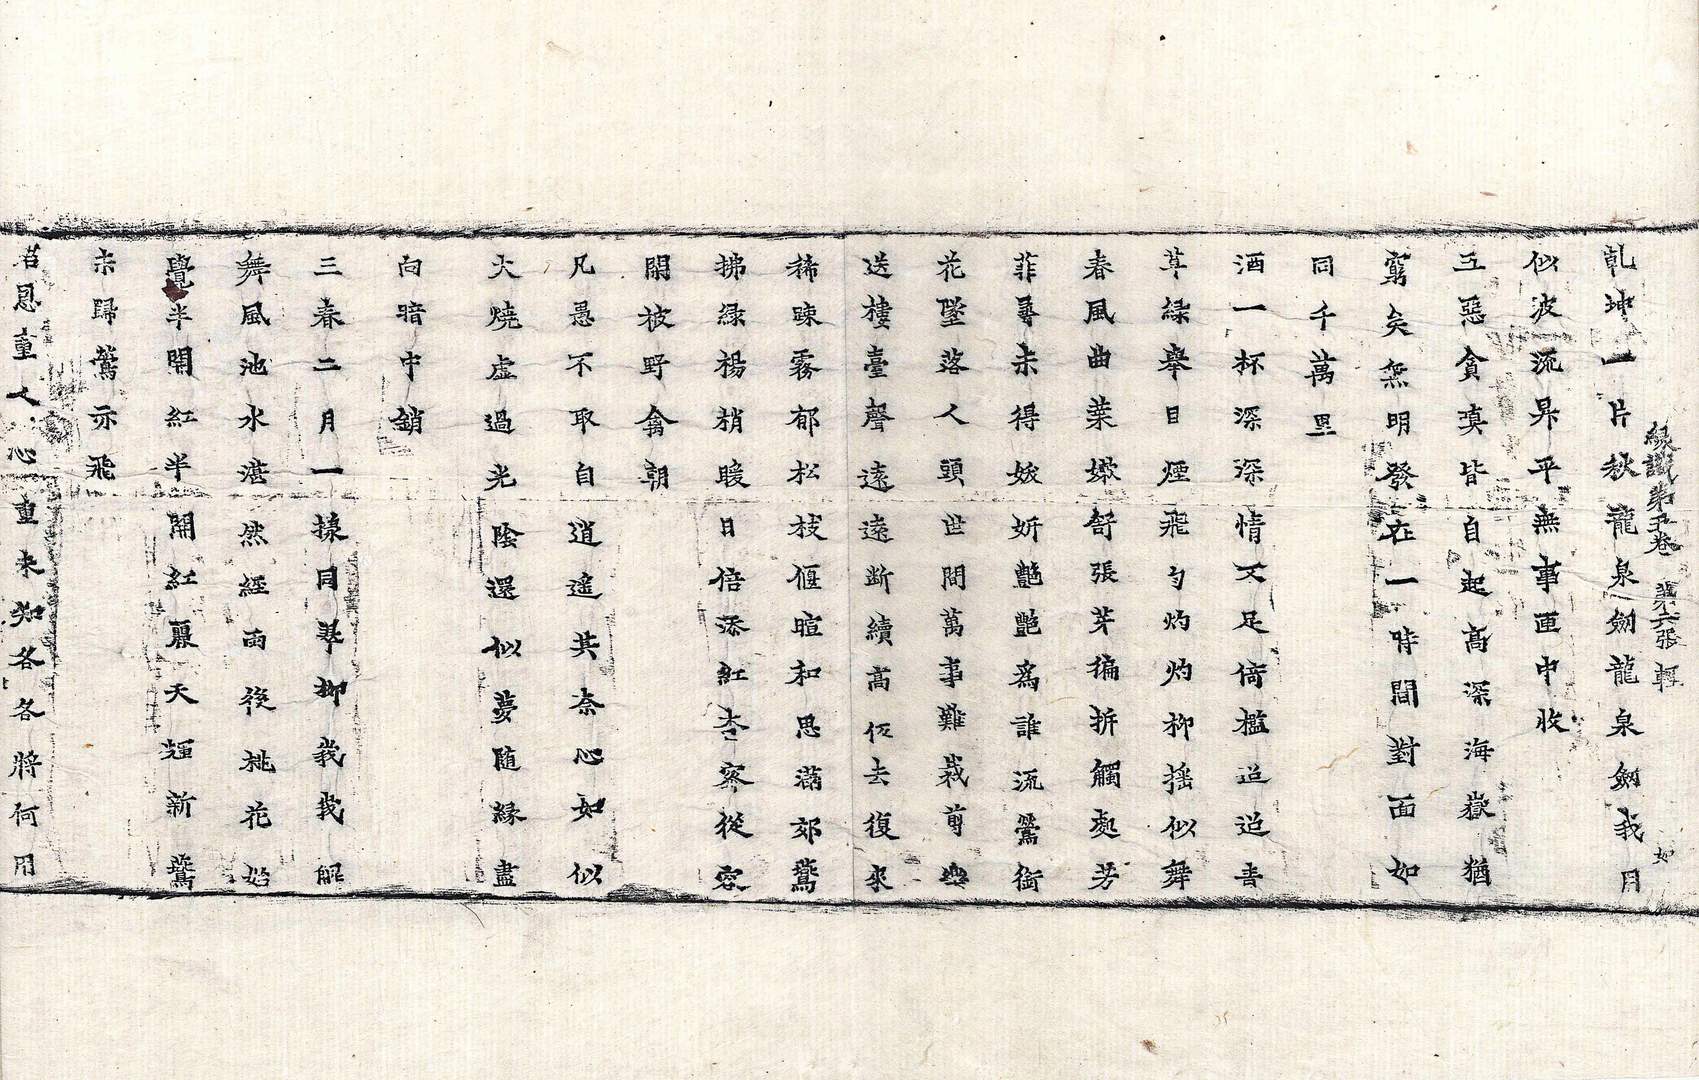 緣識第五卷 第六張 輕 如
乹坤一片秋龍泉劒龍泉劒我月
似波流昇平無事匣中收
五惡貪嗔皆自起高深海嶽猶
窮矣無明發在一時間對面如
同千萬里
酒一杯深深情又足倚檻迢迢春
草綠舉目煙飛勺灼灼柳搖似舞
春風曲葉嫩舒張芽徧拆觸處芳
菲尋未得妖妍艷艷爲誰流鶯銜
花墜落人頭世間萬事難裁剪幽
送樓臺聲遠遠斷續高低去復來
稀踈霧郁松枝偃暄和思滿郊鶯
拂綠楊梢暖日倍添紅杏密從容
閑被野禽朝
凡愚不取自逍遙共奈心如似
火燒虛過光陰還似夢隨緣盡
向暗中銷
三春二月一㨾同翠柳我我解
舞風池水湛然經雨後桃花始
覺半開紅半開紅麗天輝新鶯
未歸鶯亦飛
君恩重人心重未知各各將何用